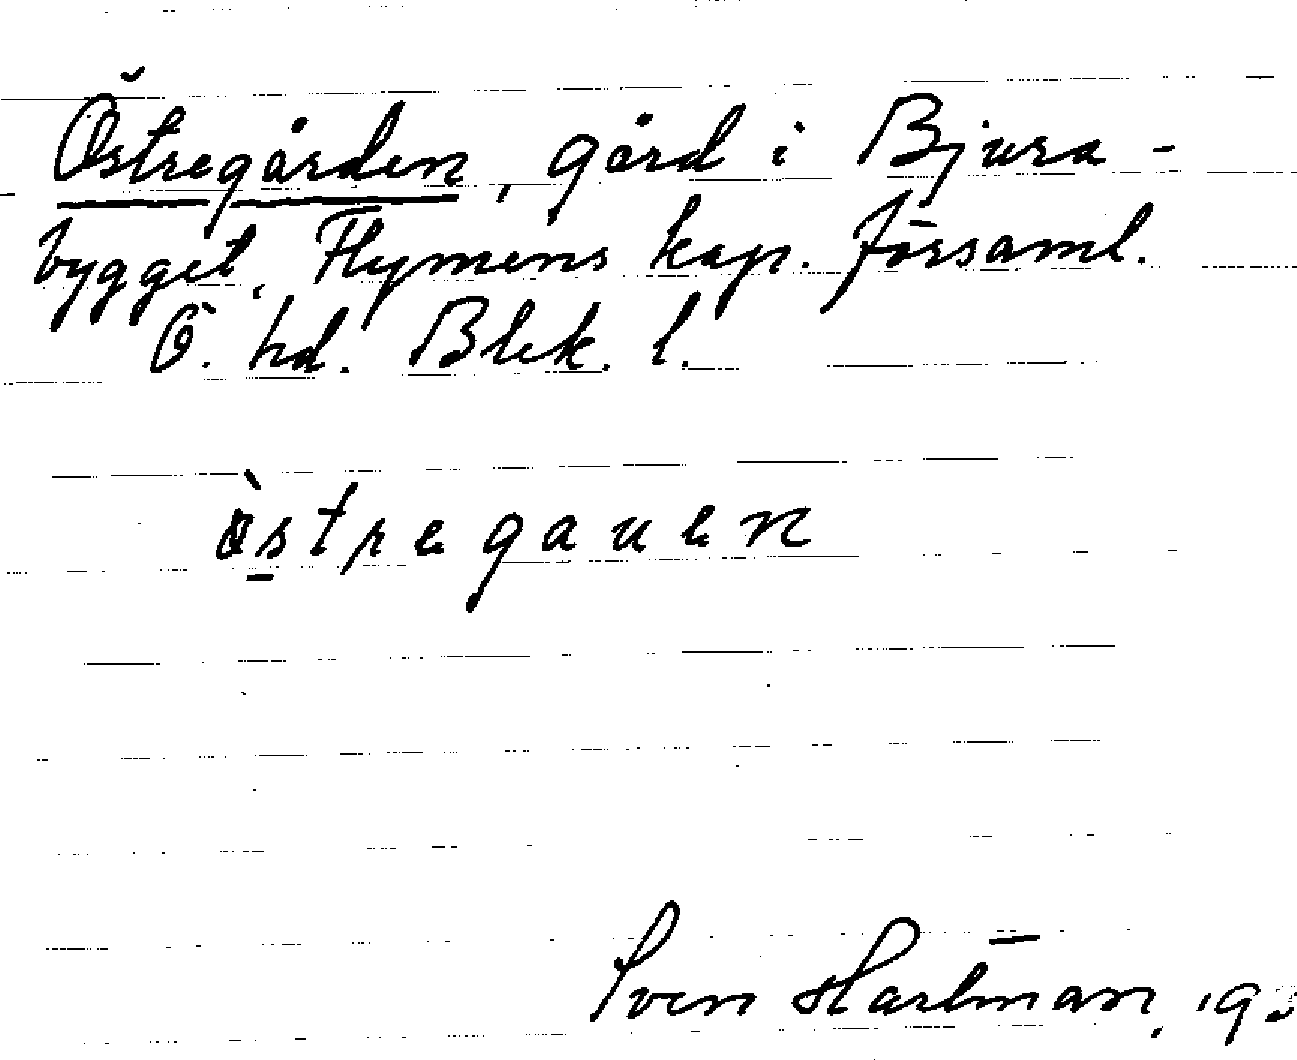 Östregården, gård i Bjura-
bygget, Flymens kap. församl.
Ö. hd. Blek. l.
östregauen
Sven Hartman, 193